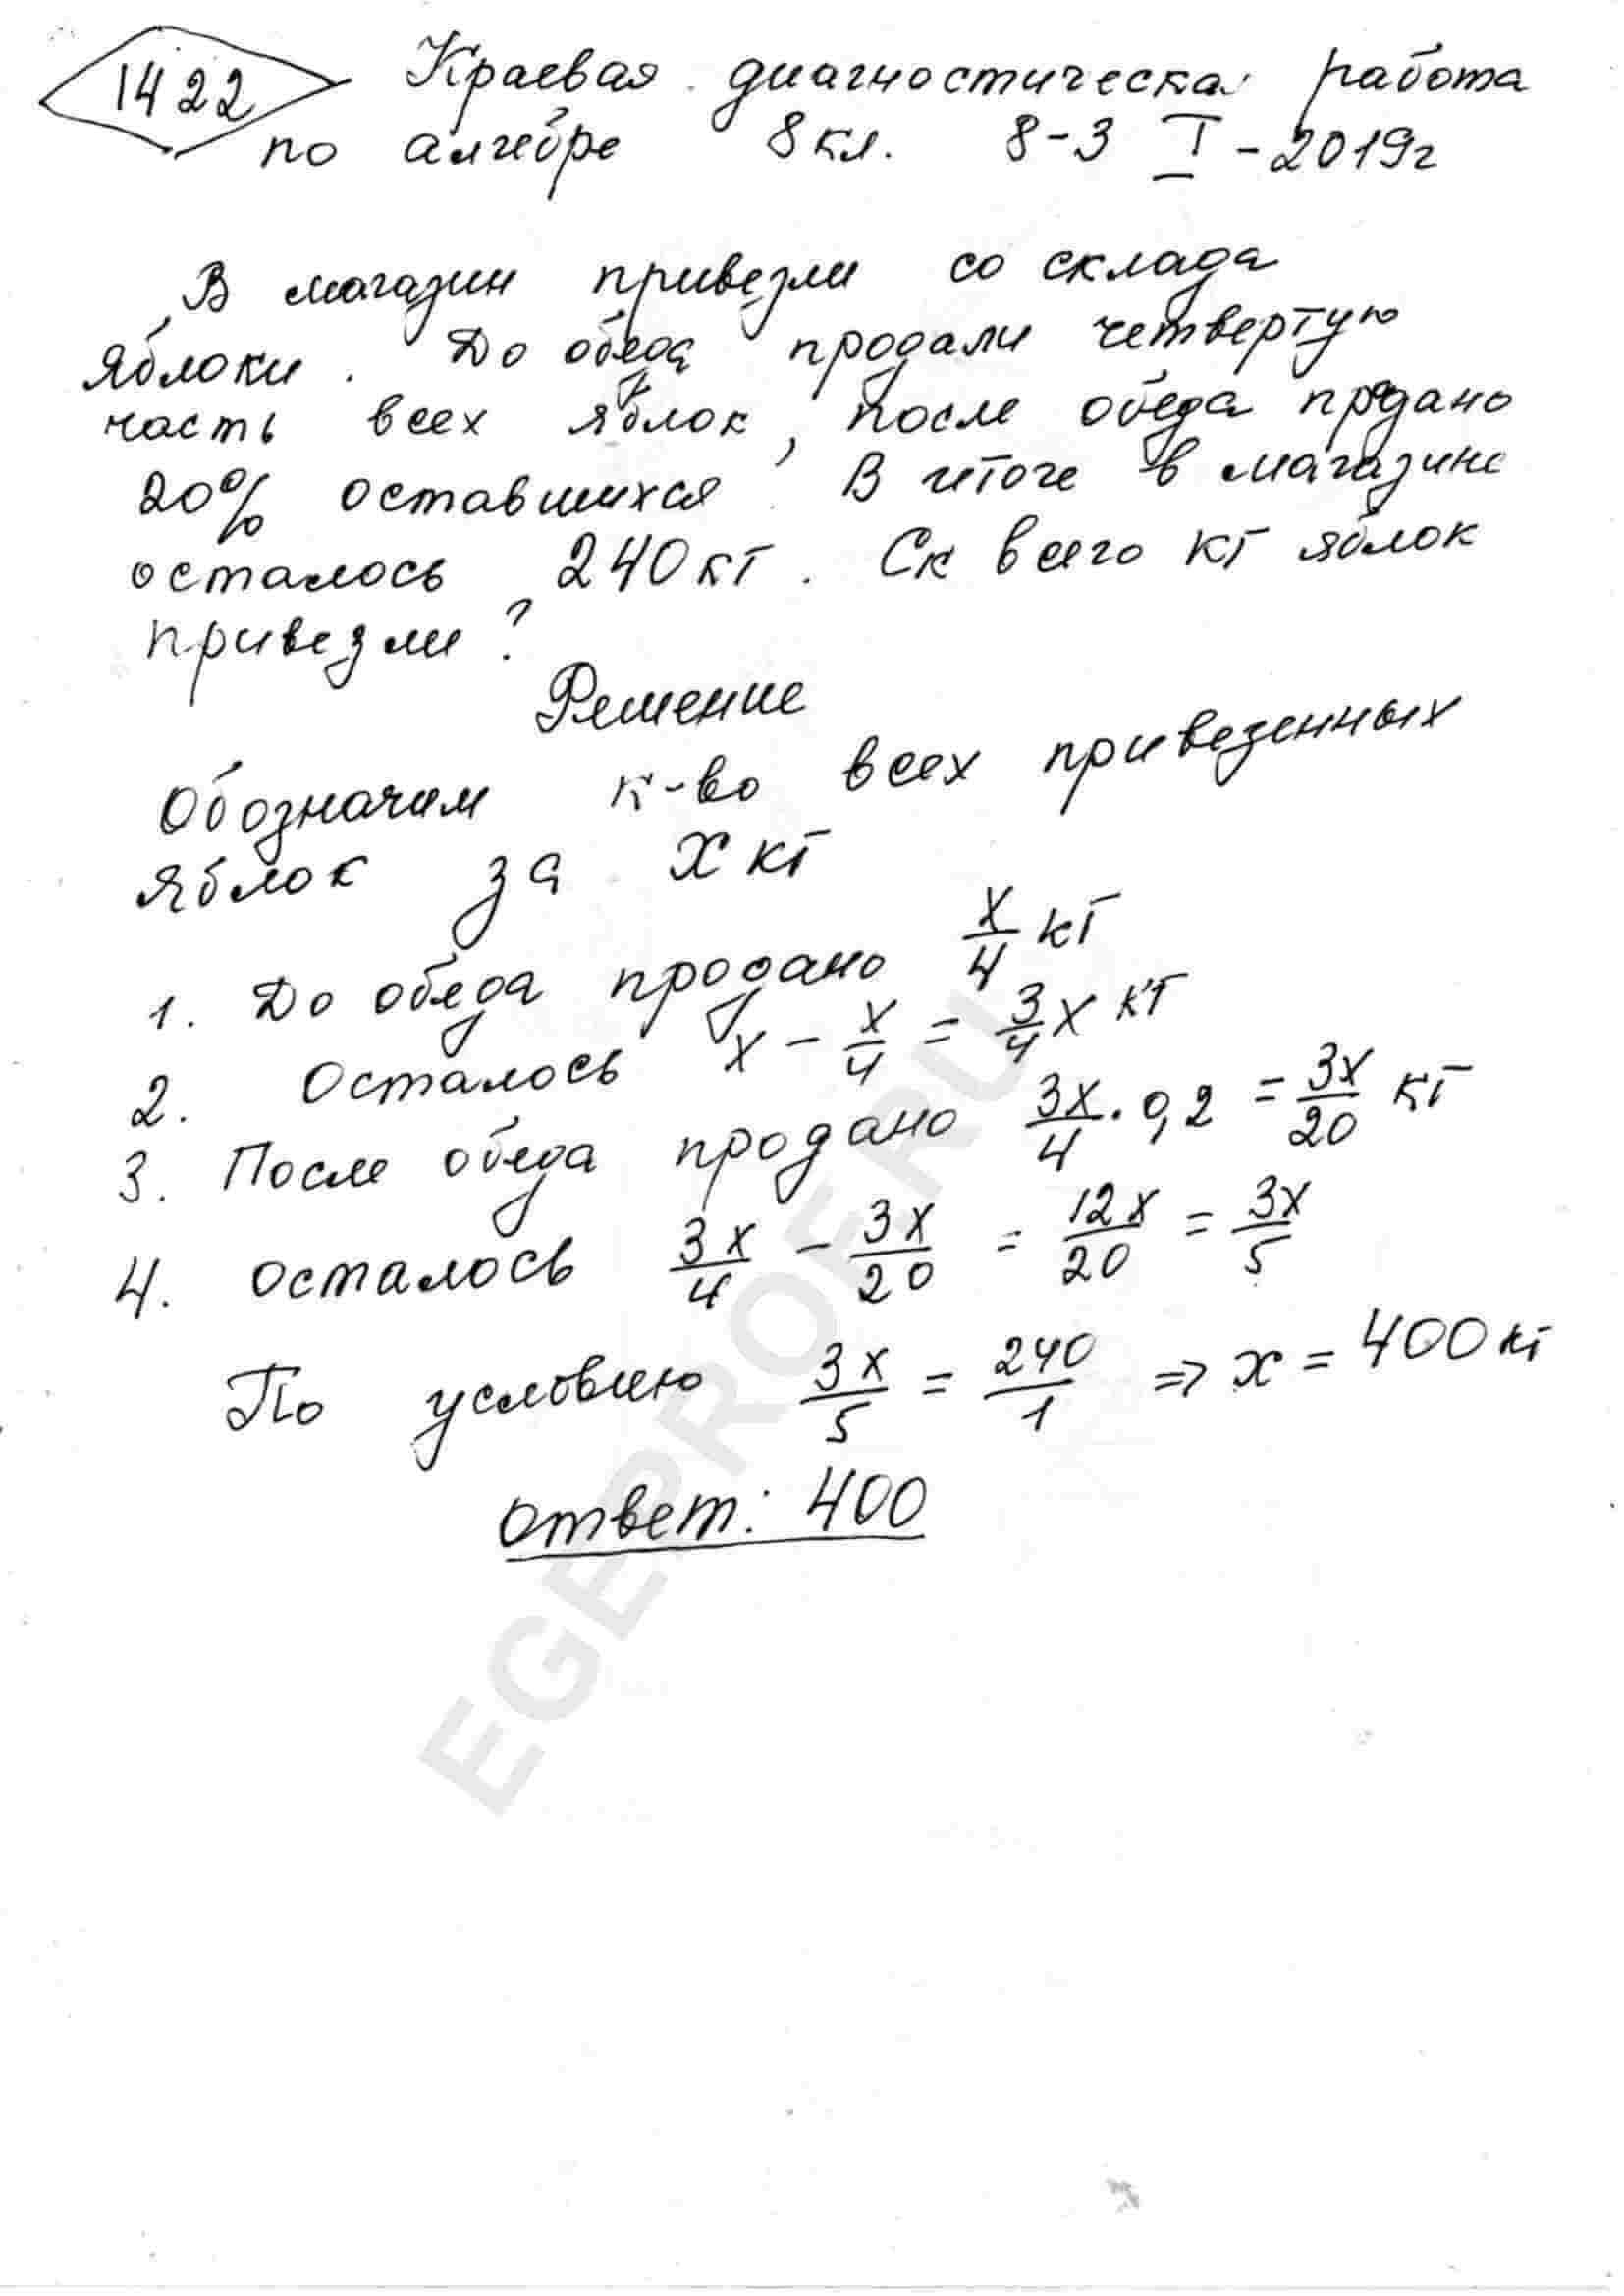 1422 Краевая диагностическая работа
по алгебре 8кл. 8-3 I-2019г
В магазин привезли со склада
яблоки. До обеда продали четвертую
часть всех яблок, после обеда продано
20% оставшихся. В итоге в магазине
осталось 240кг. Ск всего кг яблок
привезли?
Решение
Обозначим к-во всех привезенных
яблок за x кг
1. До обеда продано x/4 кг
2. Осталось x - x/4 = 3/4 x кг
3. После обеда продано 3x/4 · 0,2 = 3x/20 кг
4. осталось 3x/4 - 3x/20 = 12x/20 = 3x/5
По условию 3x/5 = 240/1 => x = 400 кг
Ответ: 400
EGEPROF.RU